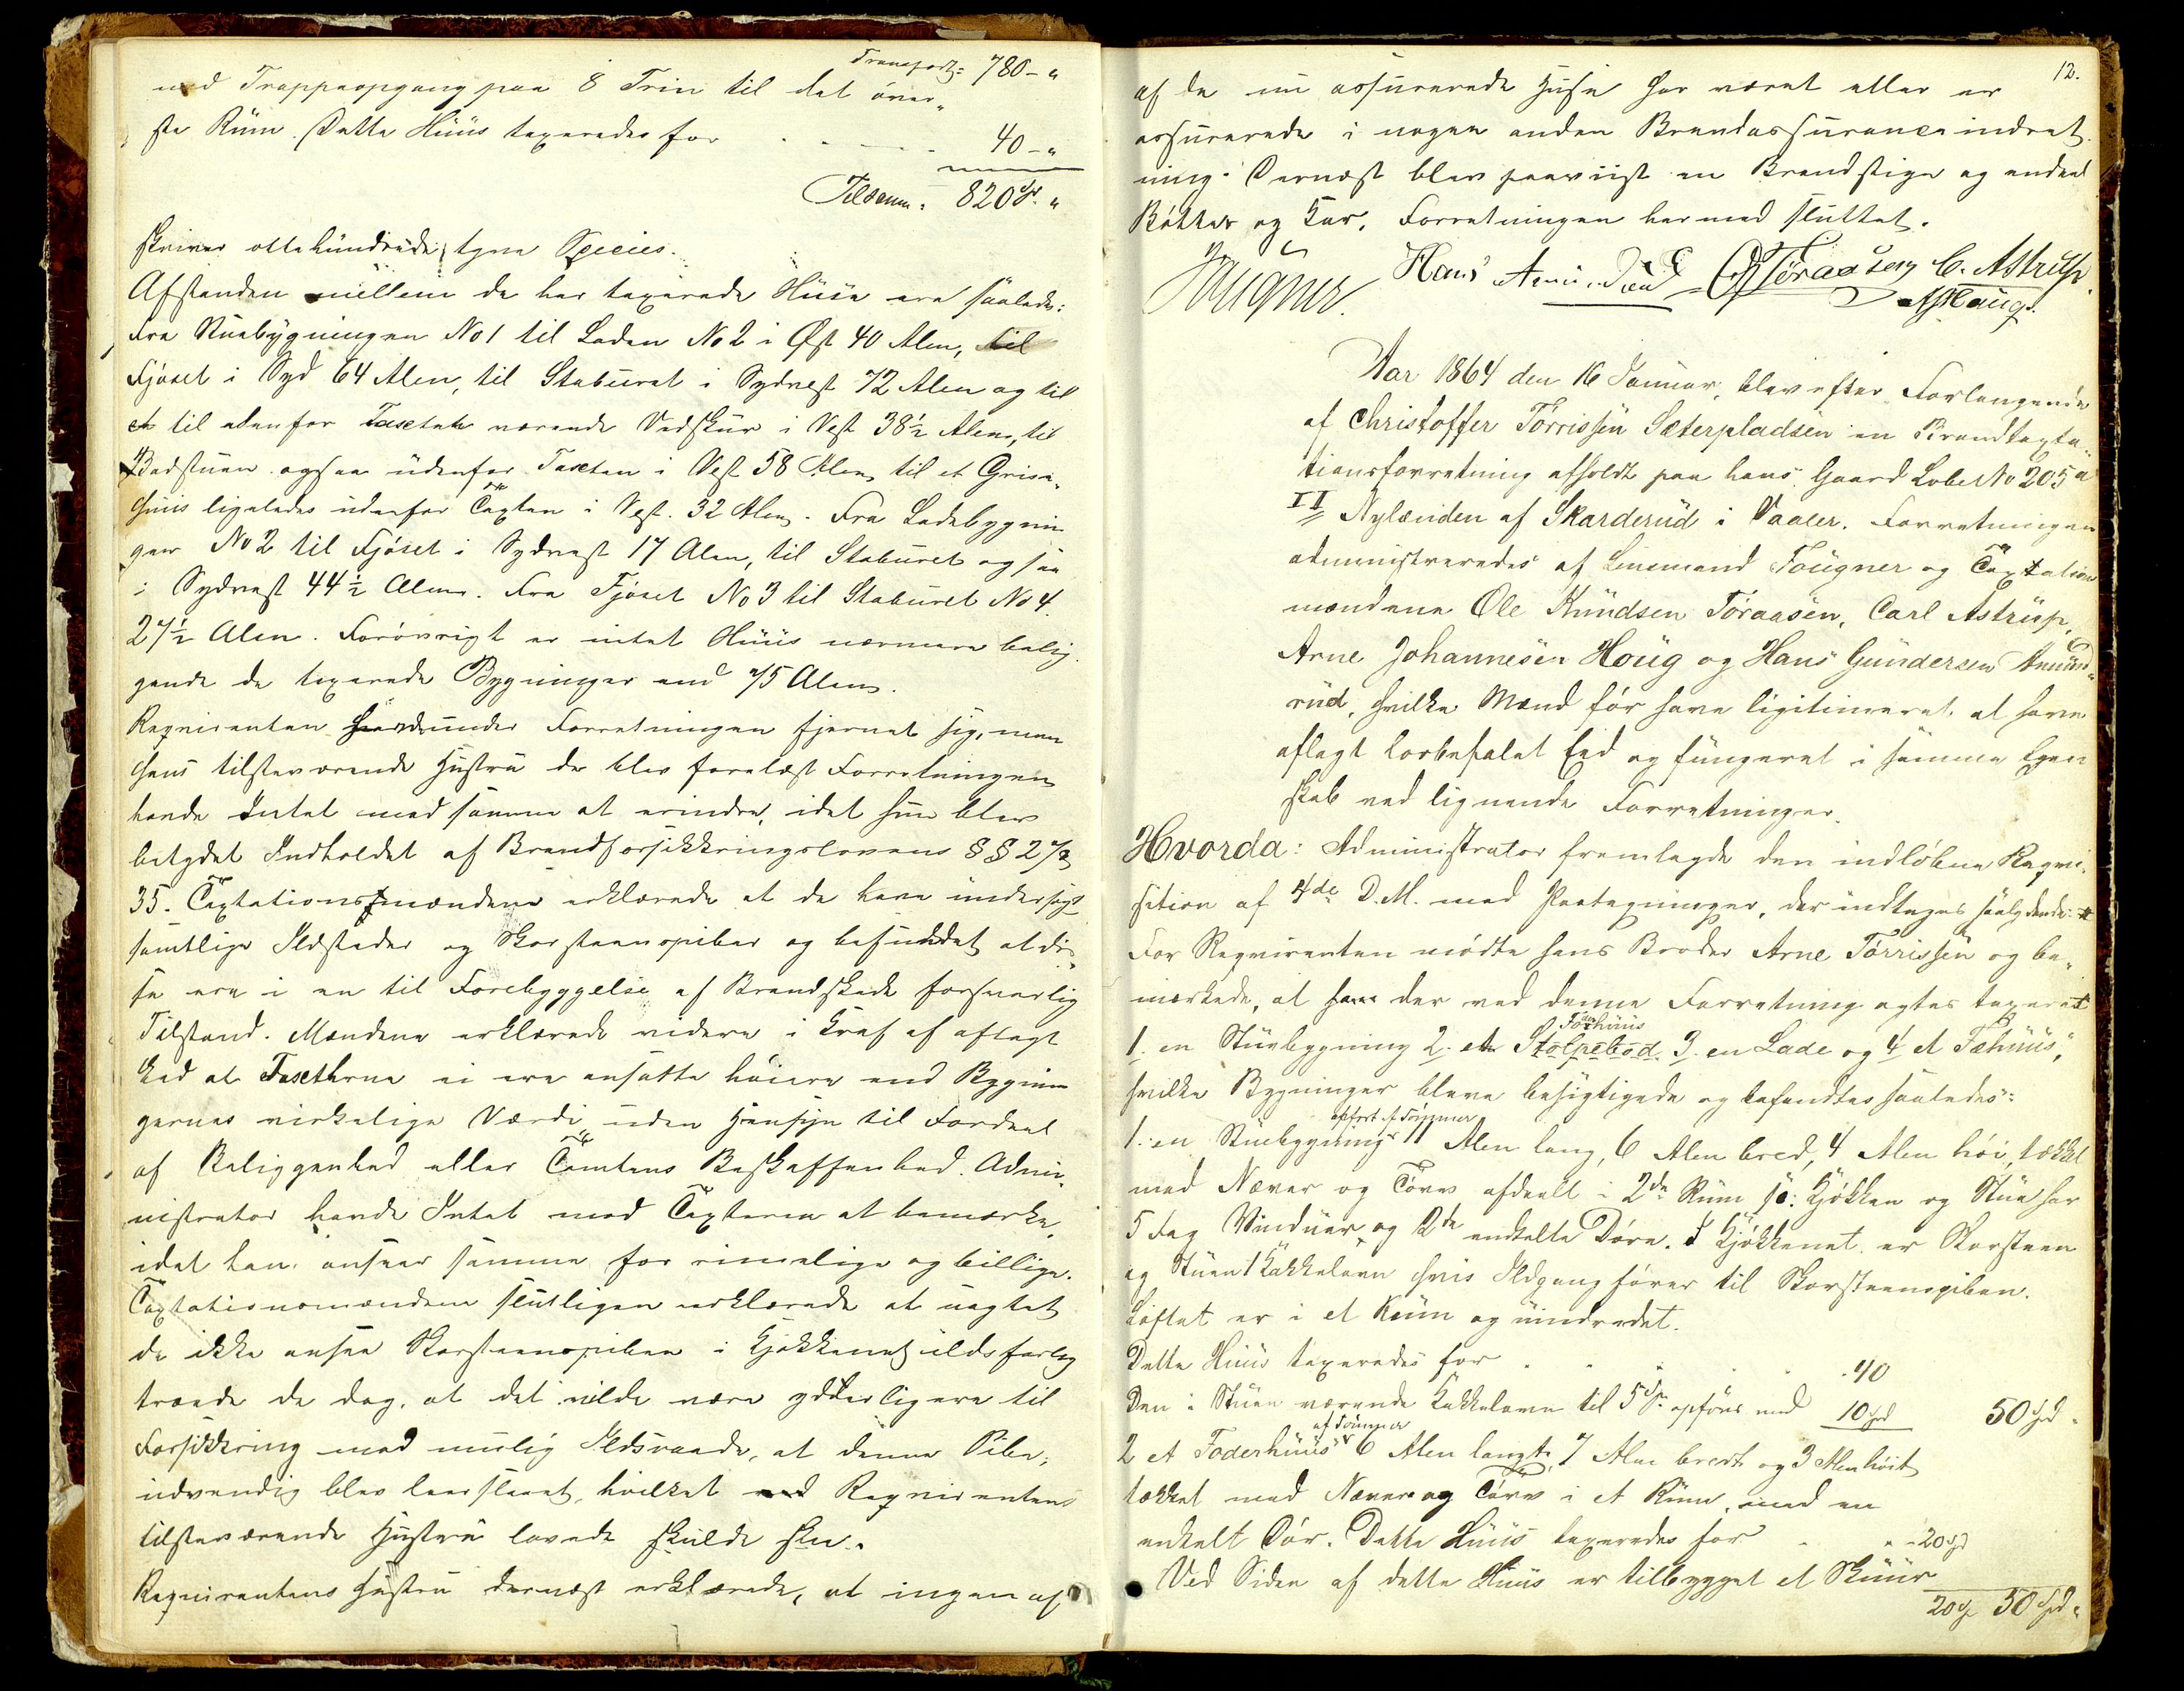 Transport = 780 - "
med Trappeopgang paa 8 Trin til det över-
ste Rüm. Dette Hüüs taxeredes for 40 - "
Tilsamm: 820 Sp. "
skriver ottehündrede tyve Species.
Afstanden mellem de her taxerede Hüse ere saalede:
fra Stuebygningen No 1 til Laden No 2 i Øst 40 Alen, til
Fjøset i Syd 64 Alen, til Stabüret i Sydvest 72 Alen og til
et til udenfor Taxten værende Vedskür i Vest 38½ Alen, til
Badstuen ogsaa üdenfor Taxten i Vest 58 Alen, til et Grise-
hüüs ligeledes üdenfor Taxten i Vest. 32 Alen. Fra Ladebygnin-
gen No 2 til Fjöset i Sydvest 17 Alen, til Stabüret ogsaa
i Sydvest 44½ Alen. Fra Fjöset No 3 til Stabüret No 4.
27½ Alen. Forövrigt er intet Hüüs nærmere belig-
gende de taxerede Bygninger end 75 Alen.
Reqvirenten havde under Forretningen fjernet sig, men
hans tilstæværende Hüstrü der blev forelæst Forretningen
havde Intet mod samme at erindre, idet hun blev
betydet Indholdet af Brandforsikkringslovens §§ 27 &
35. Taxtationsmændene erklærede at de have ündersøgt
samtlige Ildsteder og Skorsteenspiber og befundet at dis-
se ere i en til Forebyggelse af Brandskade forsvarlig
Tilstand. Mændene erklærede videre i Kraf af aflagt
Eed at Taxterne ei ere ansatte höiere end Bygnin
gernes virkelige Værdi uden Hensyn til Fordeel
af Beliggenhed eller Tomtens Beskaffenhed. Admi-
nistrator havde Intet mod Taxterne at bemærke,
idet han anseer samme for rimelige og billige.
Taxtationsmændene slütligen erklærede at uagtet
de ikke ansee Skorsteenspiben i Kjøkkenet ildsfarlig
troede de dog, at det vilde være ydderligere til
Forsikkring mod mulig Ildsvaade, at denne Pibe,
udvendig blev leerslaaet, hvilket Reqvirentens
tilstæværende Hüstrü lovede skulde skee.
Reqvirentens Hüstrü dernæst erklærede, at ingen af
12.
af de nu assurerede Huse har været eller er
assurerede i nogen anden Brandassuranceindret-
ning. Dernæst blev paaviist en Brandstige og endeel
Bötter og Kar. Forretningen hermed sluttet.
Fougner. Hans Amundrud OKTöraasen C. Astrup.
AJHoug.
Aar 1864 den 16 Januar, blev efter Forlangende
af Christoffer Törrissen Sæterpladsen en Brandtaxta-
tionsforretning afholdt paa hans Gaard Løbe No 205 a
II Nylænden af Skarderüd i Vaaler. Forretningen
administreredes af Lensmand Foügner og Taxtations
mændene Ole Knüdsen Töraasen, Carl Astrüp,
Arne Johannesen Hoüg og Hans Gündersen Amünd-
rüd, hvilke Mænd för have ligitimeret at have
aflagt Lovbefalet Eed og füngeret i samme Egen
skab ved lignende Forretninger.
Hvorda: Administrator fremlagde den indløbne Reqvi-
sition af 4de D.M. med Paategninger, der indtages saalydende: #
For Reqvirenten mödte hans Broder Arne Törrissen og be-
mærkede, at der ved denne Forretning agtes taxeret
Foderhüüs
1. en Stüebygning 2. et Stolpebod. 3. en Lade og 4 et Fæhüüs,
hvilke Bygninger bleve besigtigede og befandtes saaledes:
opført af Tömmer
1. en Stüebygning 11 Alen lang, 6 Alen bred, 4 Alen höi, tækket
med Næver og Törv afdeelt i 2de Rüm s: Kjökken og Stüe har
5 Fag Vindüer og 2de enkelte Döre. I Kjøkkenet er Skorsteen
og Stüen 1 Kakkelovn hvis Ildgang fører til Skorsteenspiben.
Loftet er i et Rüm og üindredet.
Dette Hüüs taxeredes for 40
Den i Stüen værende Kakkelovn til 5 Sp. opföres med 10 Spd 50 Spd.
af Tömmer
2 et Foderhüüs 6 Alen langt, 7 Alen bredt og 3 Alen höit
tækket med Næver og Törv i et Rüm, med en
enkelt Dör. Dette Hüüs taxeredes for 20 Spd
Ved Siden af dette Hüüs er tilbygget et Sküür
20 Sp 50 Spd.